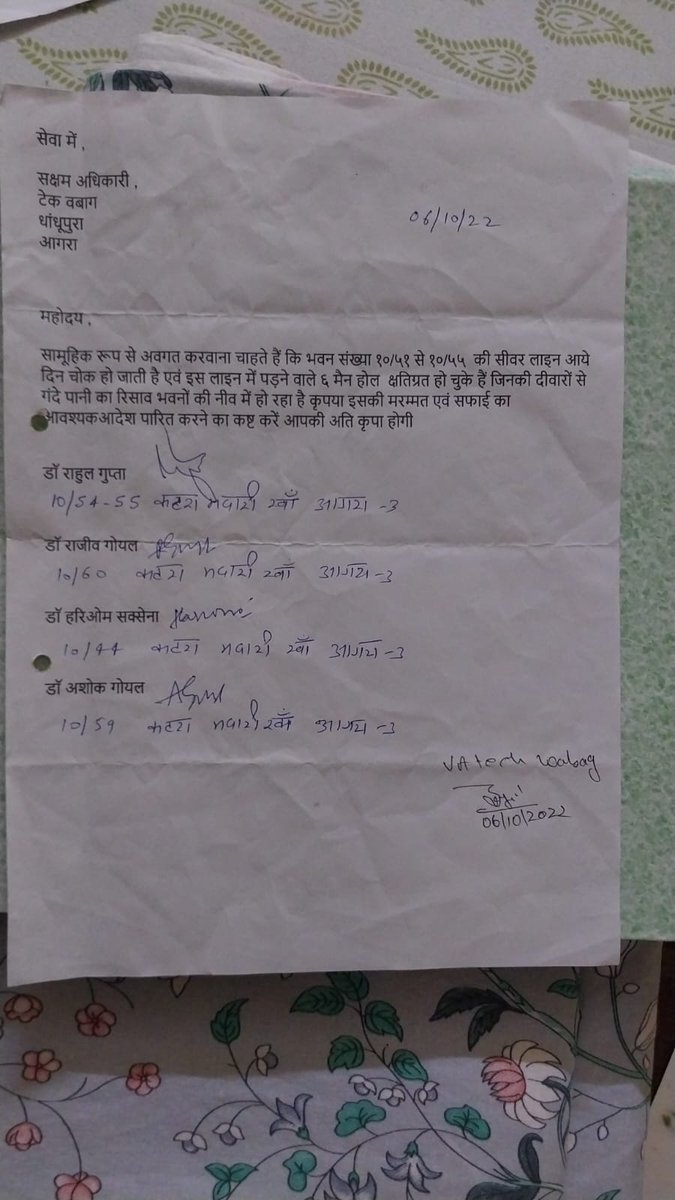 सेवा में ,
सक्षम अधिकारी ,
टेक वबाग
धांधूपुरा
आगरा
06/10/22
महोदय ,
सामूहिक रूप से अवगत करवाना चाहते हैं कि भवन संख्या १०/५१ से १०/५५ की सीवर लाइन आये
दिन चोक हो जाती है एवं इस लाइन में पड़ने वाले ६ मैन होल क्षतिग्रत हो चुके हैं जिनकी दीवारों से
गंदे पानी का रिसाव भवनों की नीव में हो रहा है कृपया इसकी मरम्मत एवं सफाई का
आवश्यकआदेश पारित करने का कष्ट करें आपकी अति कृपा होगी
डॉ राहुल गुप्ता
10/54-55 कटरा मदारी खाँ आगरा -3
डॉ राजीव गोयल
10/60 कटरा मदारी खाँ आगरा -3
डॉ हरिओम सक्सेना
10/44 कटरा मदारी खाँ आगरा -3
डॉ अशोक गोयल
10/59 कटरा मदारी खाँ आगरा -3
VA tech wabag
06/10/2022